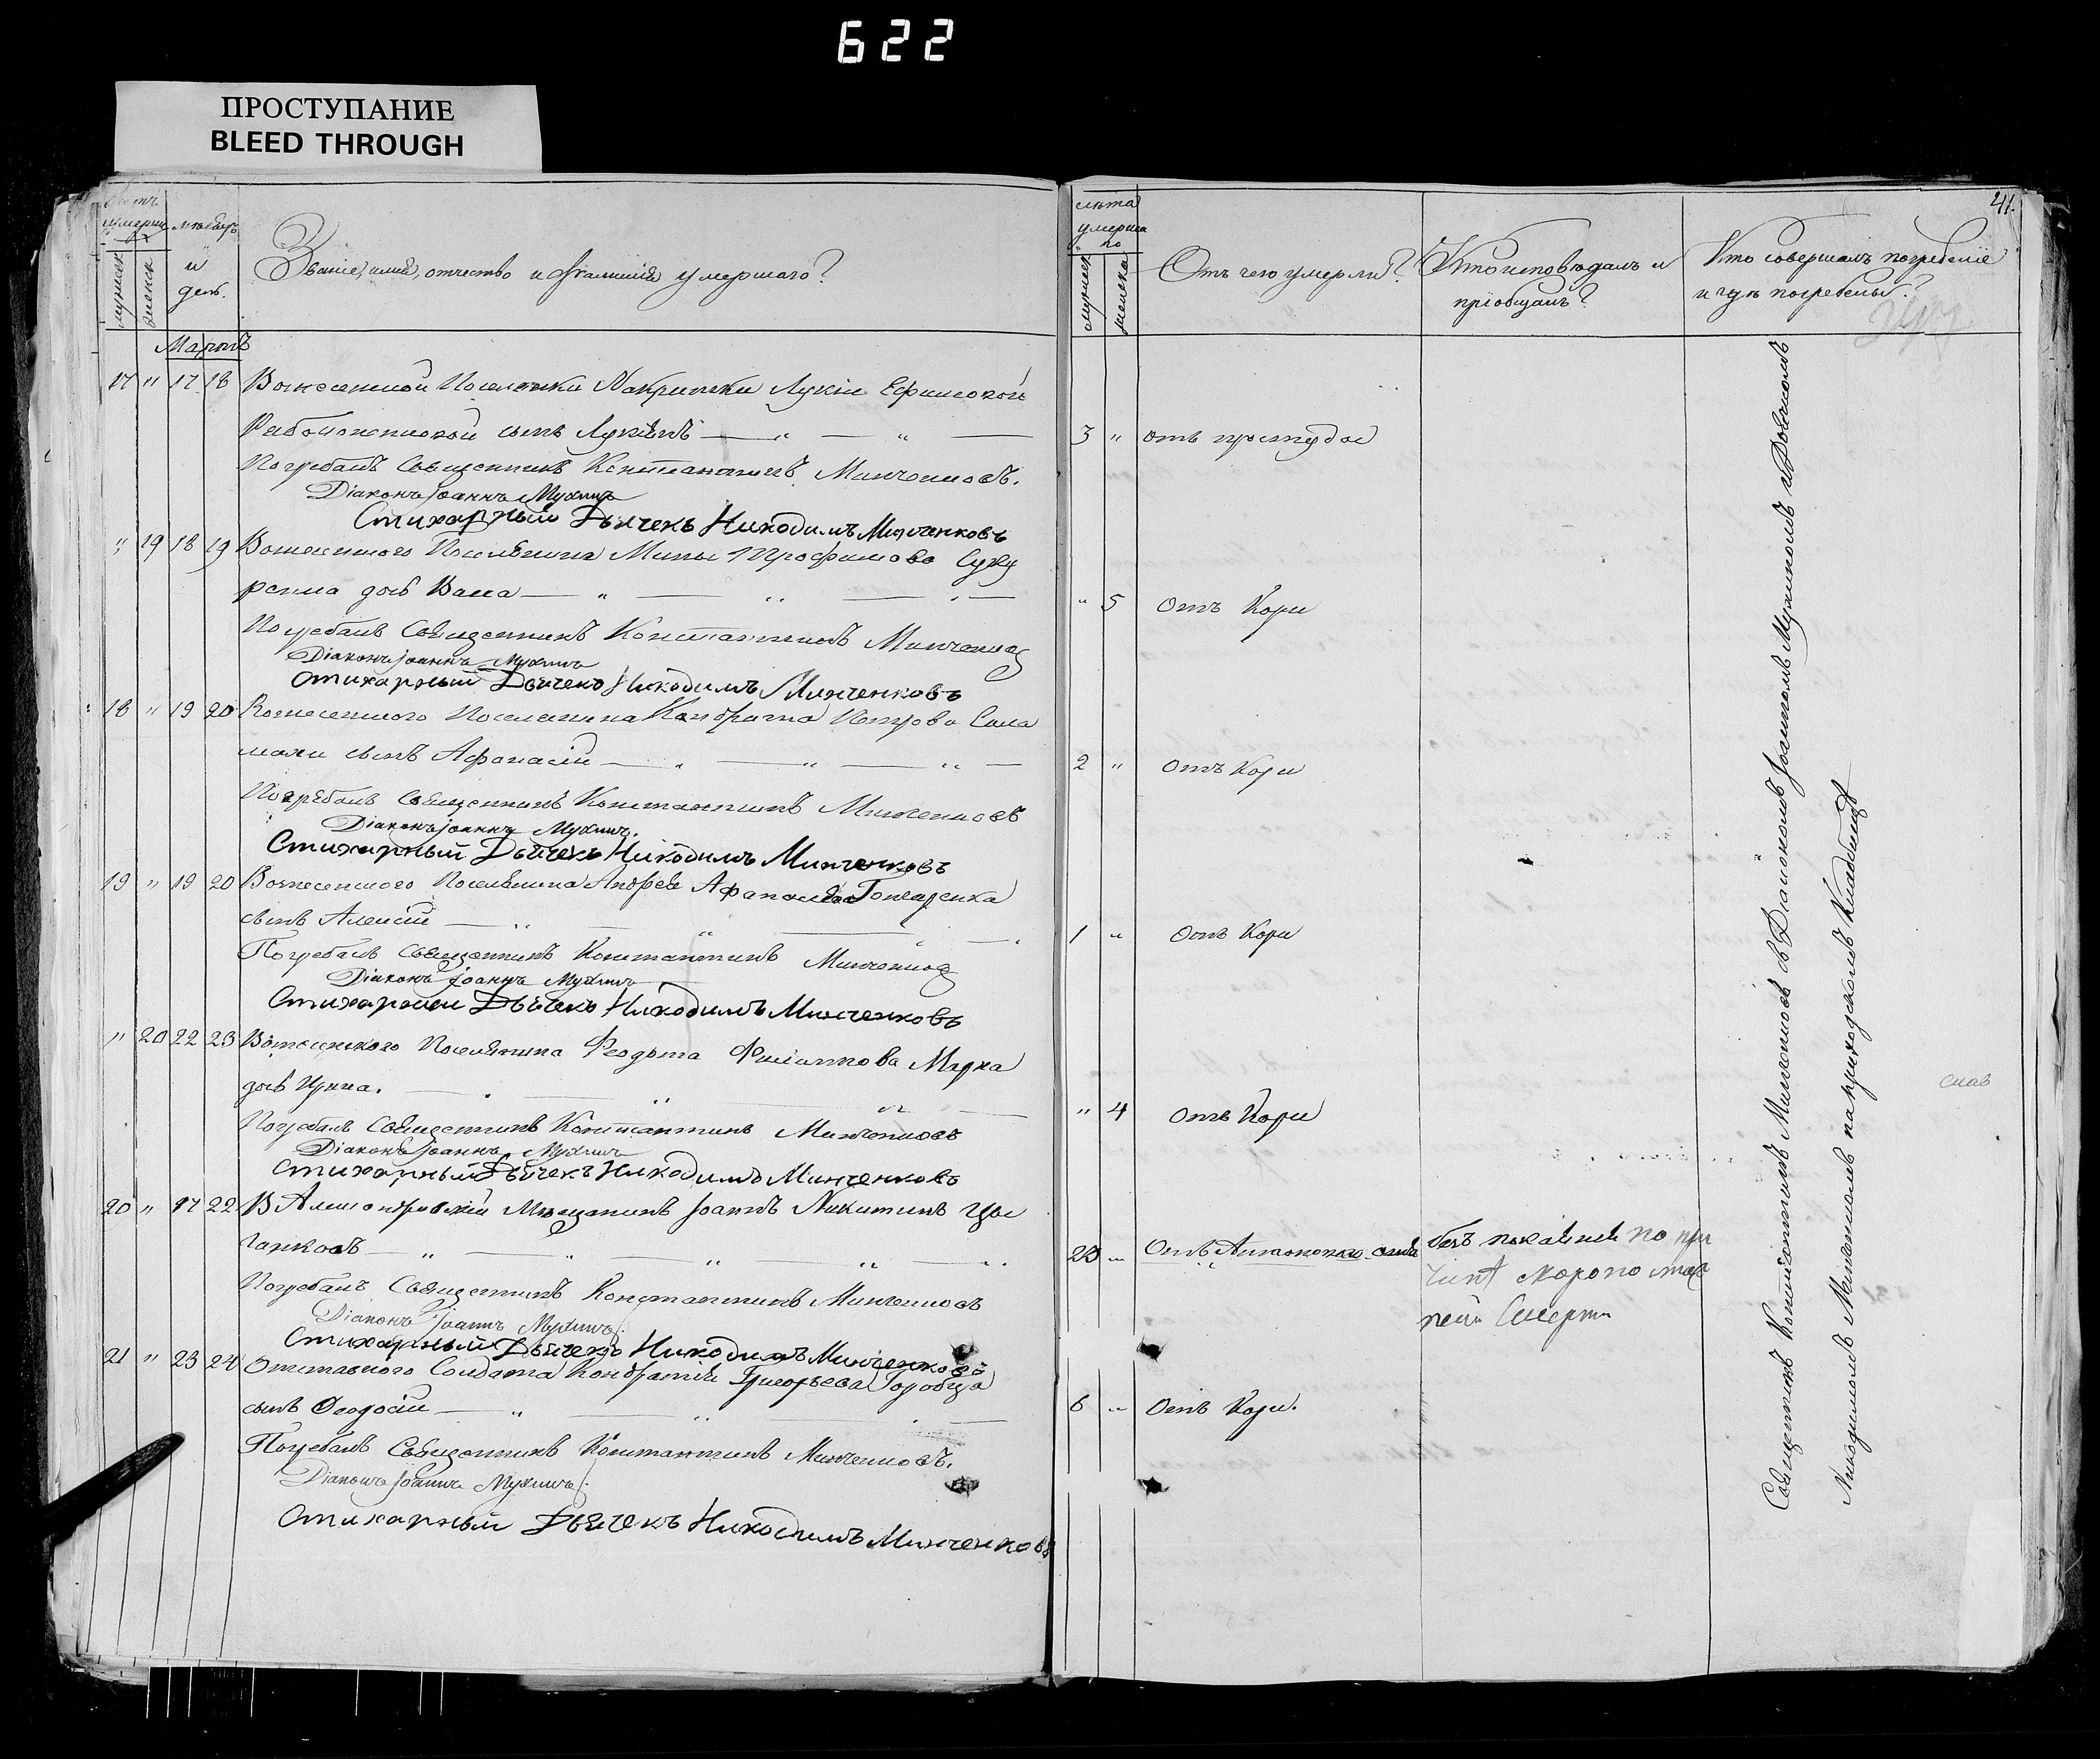 622
ПРОСТУПАНИЕ
BLEED THROUGH
мужеск
женск
и
день.
Званіе, имя, отчество и фамилія умершаго?
Мартъ
17 " 17 18 Вознесенской Поселянки Лукіи Ефимовой
сынъ Лукіянъ — " — " —
Погребалъ Священникъ Константинъ Минченковъ.
Діаконъ Іоаннъ Мухинъ
Стихарный Дьячекъ Никодимъ Минченковъ
" 19 18 19 Вознесенского Поселянина Мины Трофимова
дочь Васса — " — " — " —
Погребалъ Священникъ Константинъ Минченков
Діаконъ Іоаннъ Мухинъ
Стихарный Дьячекъ Никодимъ Минченковъ
18 " 19 20 Вознесенского Поселянина Кондрата Петрова Сала
махи сынъ Афанасій — " — " — " —
Погребалъ Священникъ Константинъ Минченковъ
Діаконъ Іоаннъ Мухинъ.
Стихарный Дьячекъ Никодимъ Минченковъ
19 " 19 20 Вознесенского Поселянина Андрея Афанасьева Гончаренка
сынъ Алексій — " — " — " —
Погребалъ Священникъ Константинъ Минченков
Діаконъ Іоаннъ Мухинъ
Стихарный Дьячекъ Никодимъ Минченковъ
" 20 22 23 Вознесенского Поселянина Феодота Филиппова
дочь Ирина. — " — " — " —
Погребалъ Священникъ Константинъ Минченковъ
Діаконъ Іоаннъ Мухинъ
Стихарный Дьячекъ Никодимъ Минченковъ
20 " 17 22 Мещанинъ Іоаннъ Никитинъ Цы
ганковъ — " — " — " — " — "
Погребалъ Священникъ Константинъ Минченковъ
Діаконъ Іоаннъ Мухинъ.
Стихарный Дьячекъ Никодимъ Минченковъ
21 " 23 24 Отставного Солдата Кондратія Григорьева Горобца
сынъ Феодосій — " — " — " —
Погребалъ Священникъ Константинъ Минченковъ.
Діаконъ Іоаннъ Мухинъ.
Стихарный Дьячекъ Никодимъ Минченковъ
41.
лѣта
умерша
го
мужеска
женска
Отъ чего умерли?
Кто исповѣдалъ и
пріобщалъ?
Кто совершалъ погребеніе
и гдѣ погребены?
3 " отъ простуды
" 5 отъ Кори
2 " отъ Кори
1 " отъ Кори
" 4 отъ Кори
безъ покаянія по при
чинѣ скоропостиж
ной Смерти
6 " отъ Кори.
Священникъ Константинъ Минченковъ съ Діакономъ Іоанномъ Мухинымъ и Дьячкомъ
Никодимомъ Минченковымъ на приходскомъ Кладбищѣ